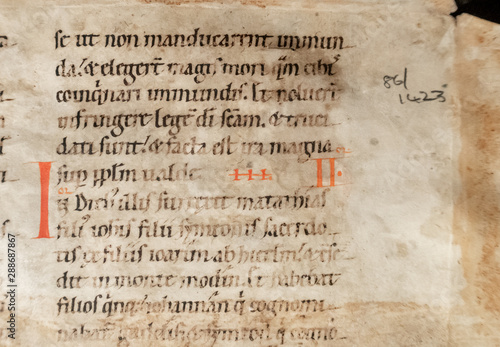 se ut non manducarent immun
da: & elegert magis mori qm cibis
coinqnari immundis. Et noluert
infringere legē dī scam. & truci
dati sunt: & facta est ira magna
sup pplm valde. III. II.
In Dieb; illis surrexit matathias
filius iohis filii symeonis sacerdo
tis ex filiis ioarim ab hierlm: & rese
dit in monte modin. Et habebat
filios qnq; iohannan q cognomi
nabat
86/
1423
Adobe Stock | #288687867